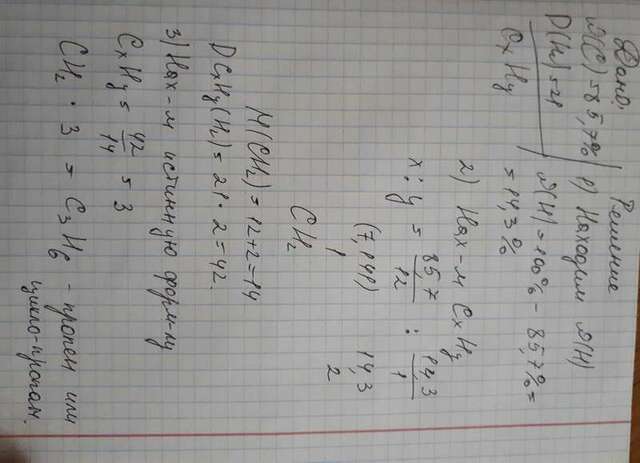 Дано:
ω(C)=85,7%
D(H₂)=21
CxHy
Решение
1) Находим ω(H)
ω(H)=100%-85,7%=
=14,3%
2) Нах-м CxHy
x:y = 85,7/12 : 14,3/1
(7,141) 14,3
1 2
CH₂
M(CH₂)=12+2=14
DCxHy(H₂)=21·2=42.
3) Нах-м истинную форм-лу
CxHy= 42/14 = 3
CH₂ · 3 = C₃H₆ - пропен или
цикло-пропан.